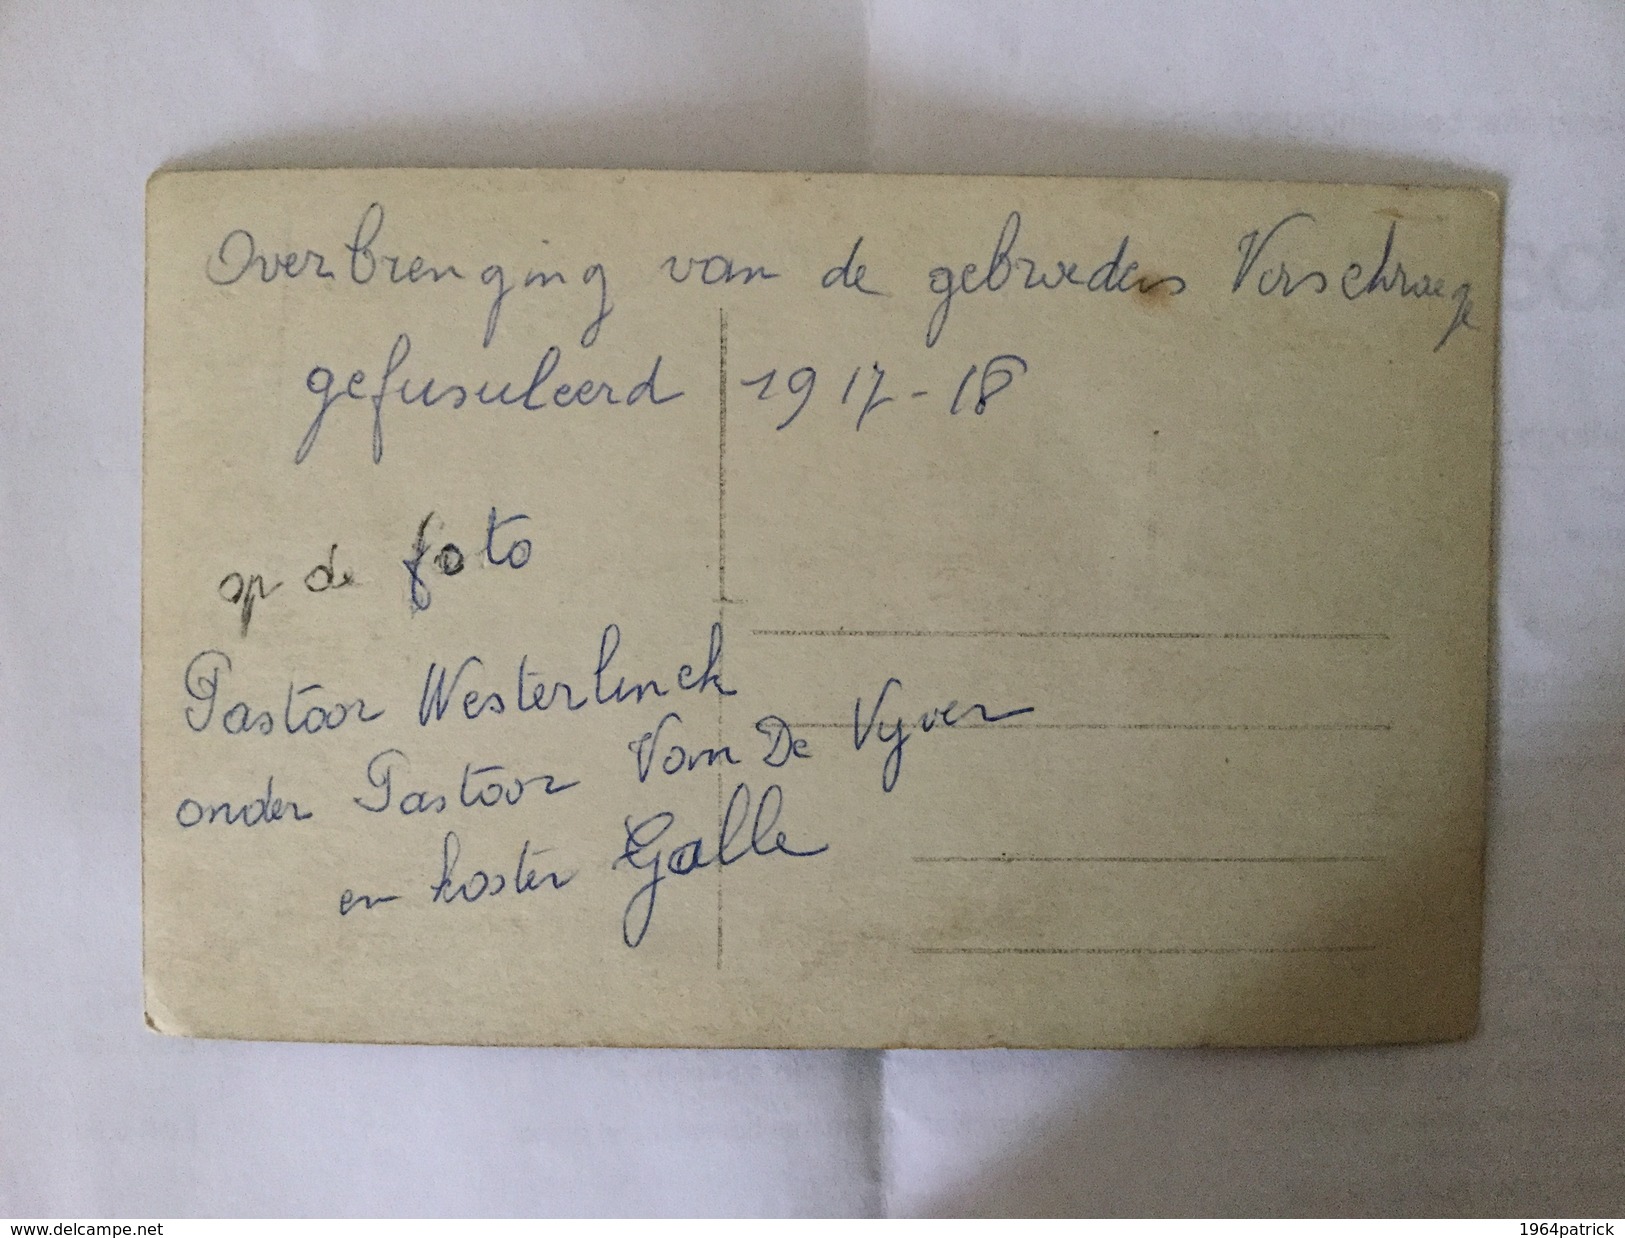 Overbrenging van de gebroeders Verschraege
gefusuleerd 1917-18
op de foto
Pastoor Westerlinck
onder Pastoor Van De Vyver
en koster Galle
www.delcampe.net
1964patrick